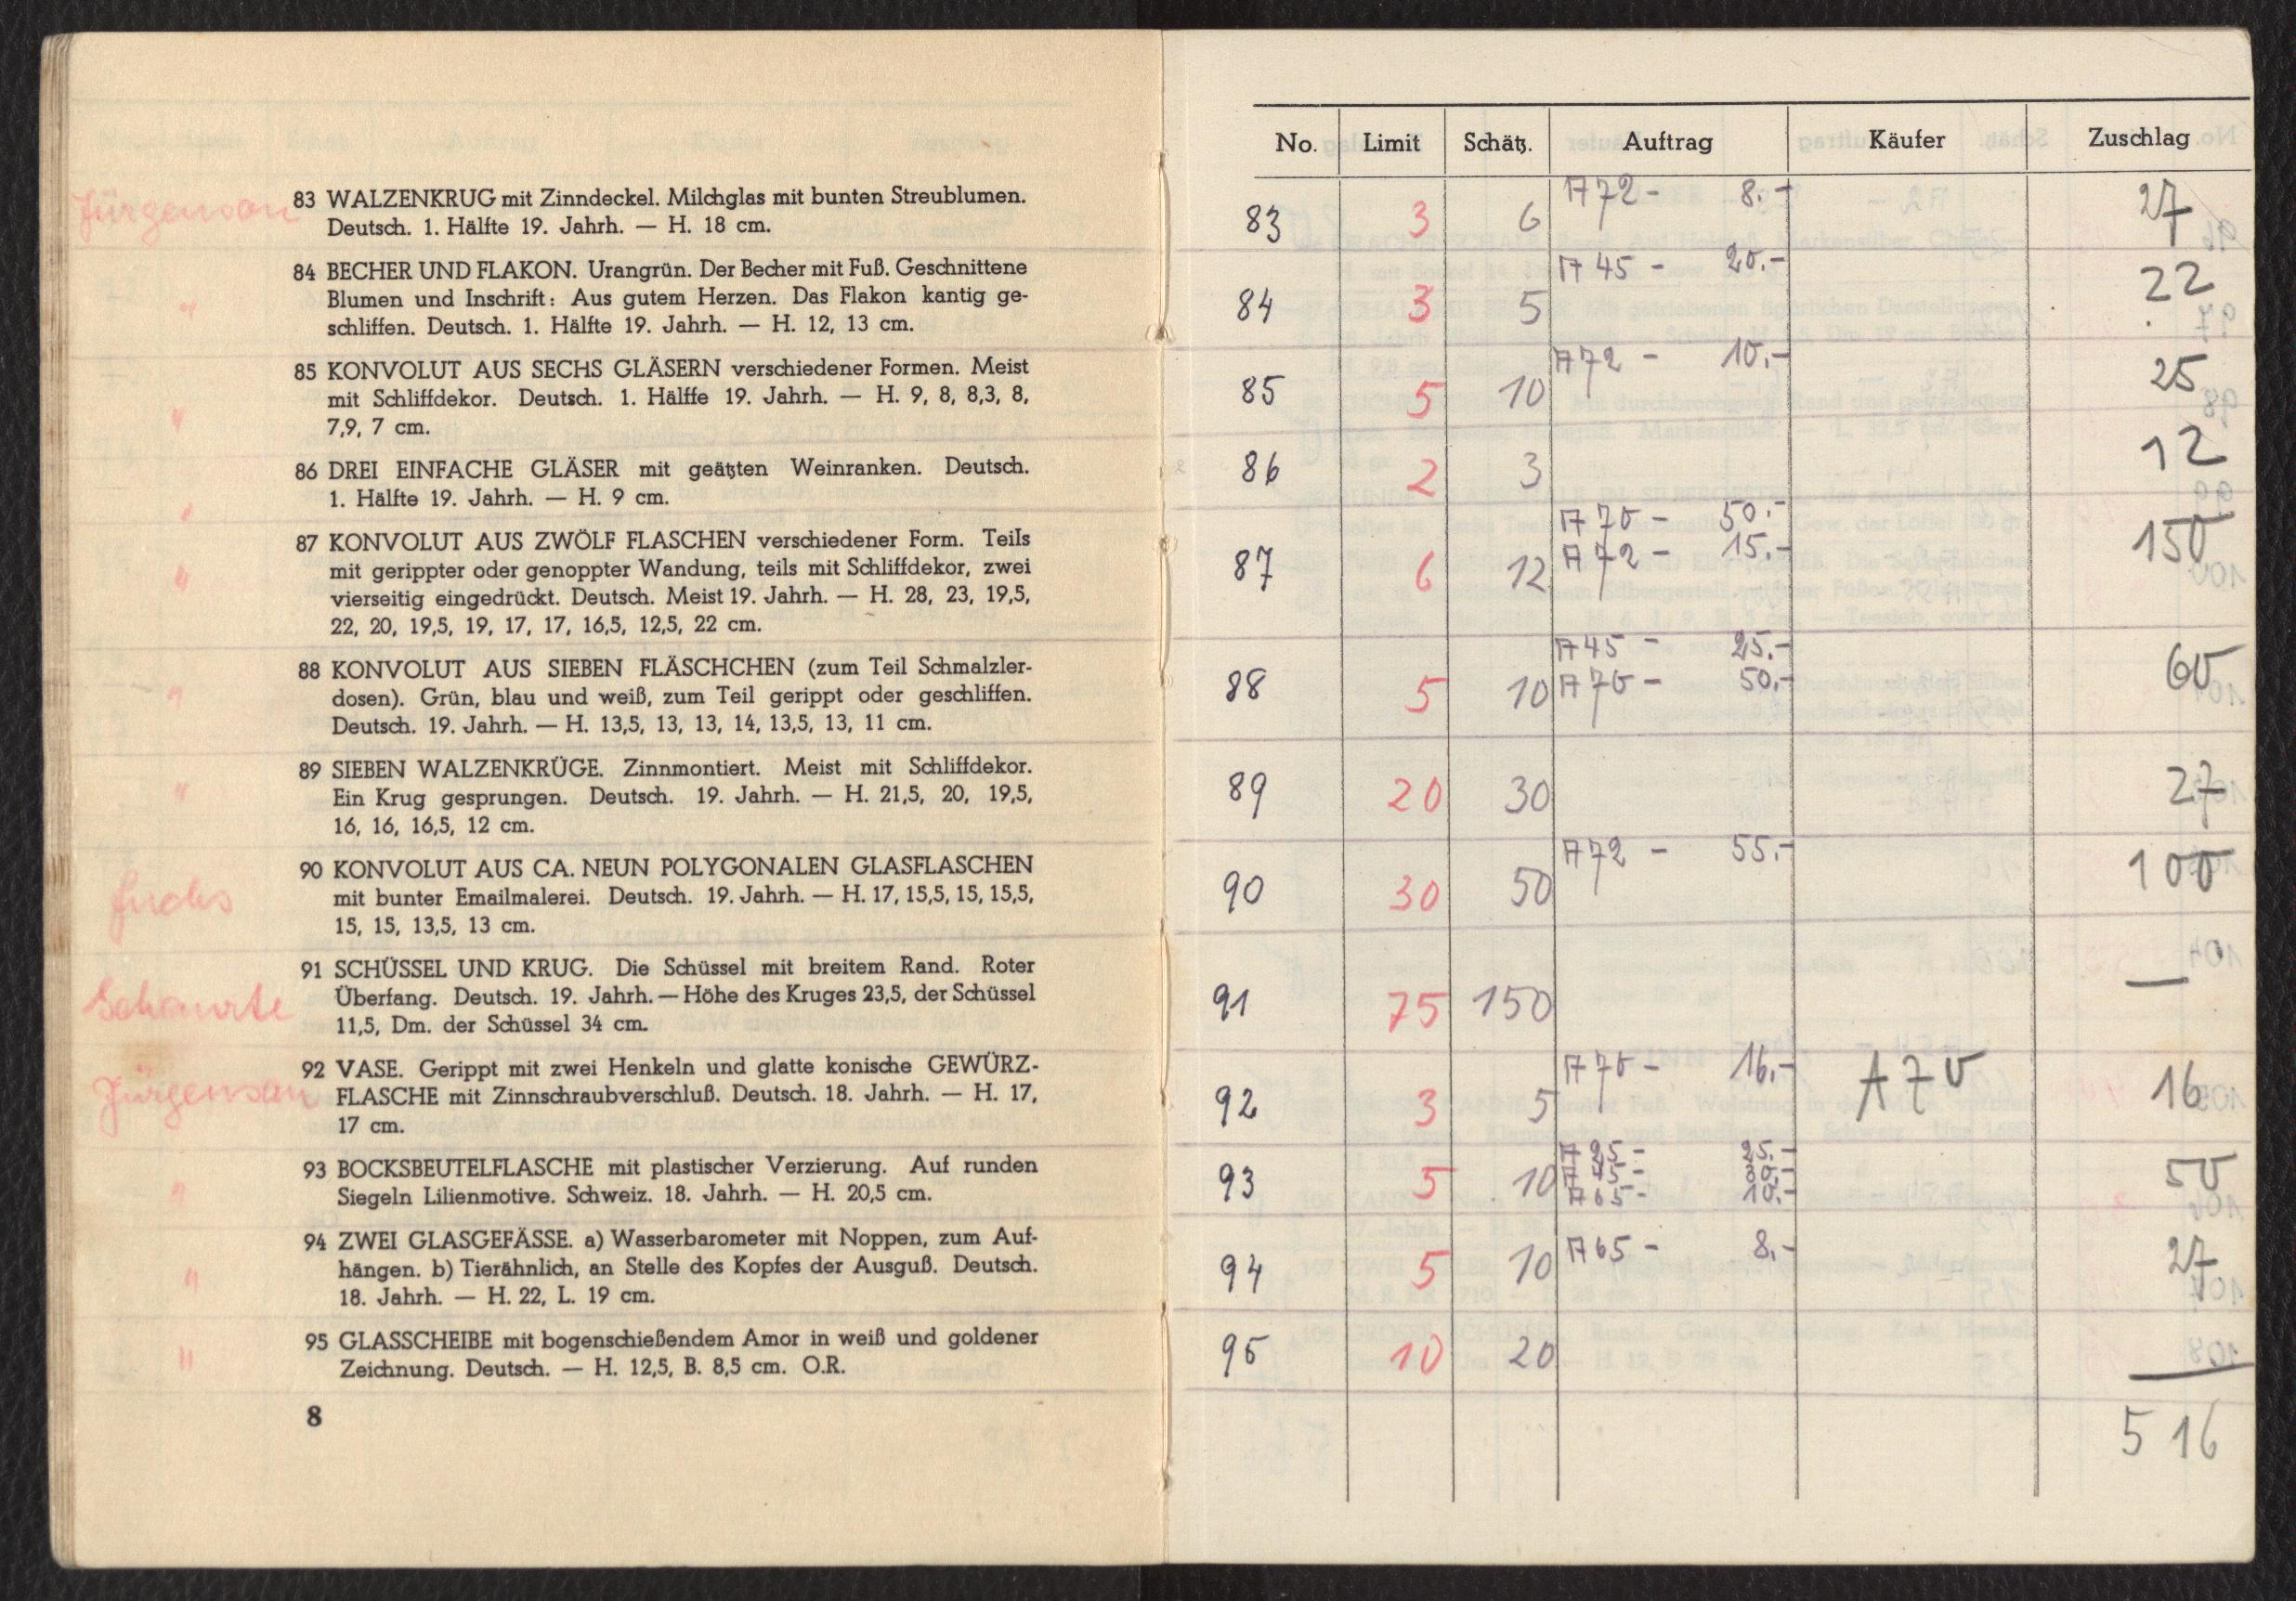 Jürgenson
83 WALZENKRUG mit Zinndeckel. Milchglas mit bunten Streublumen.
Deutsch. 1. Hälfte 19. Jahrh. — H. 18 cm.
84 BECHER UND FLAKON. Urangrün. Der Becher mit Fuß. Geschnittene
" Blumen und Inschrift: Aus gutem Herzen. Das Flakon kantig ge-
schliffen. Deutsch. 1. Hälfte 19. Jahrh. — H. 12, 13 cm.
85 KONVOLUT AUS SECHS GLÄSERN verschiedener Formen. Meist
" mit Schliffdekor. Deutsch. 1. Hälffe 19. Jahrh. — H. 9, 8, 8,3, 8,
7,9, 7 cm.
86 DREI EINFACHE GLÄSER mit geätzten Weinranken. Deutsch.
" 1. Hälfte 19. Jahrh. — H. 9 cm.
87 KONVOLUT AUS ZWÖLF FLASCHEN verschiedener Form. Teils
" mit gerippter oder genoppter Wandung, teils mit Schliffdekor, zwei
vierseitig eingedrückt. Deutsch. Meist 19. Jahrh. — H. 28, 23, 19,5,
22, 20, 19,5, 19, 17, 17, 16,5, 12,5, 22 cm.
88 KONVOLUT AUS SIEBEN FLÄSCHCHEN (zum Teil Schmalzler-
" dosen). Grün, blau und weiß, zum Teil gerippt oder geschliffen.
Deutsch. 19. Jahrh. — H. 13,5, 13, 13, 14, 13,5, 13, 11 cm.
89 SIEBEN WALZENKRÜGE. Zinnmontiert. Meist mit Schliffdekor.
" Ein Krug gesprungen. Deutsch. 19. Jahrh. — H. 21,5, 20, 19,5,
16, 16, 16,5, 12 cm.
90 KONVOLUT AUS CA. NEUN POLYGONALEN GLASFLASCHEN
Fuchs mit bunter Emailmalerei. Deutsch. 19. Jahrh. — H. 17, 15,5, 15, 15,5,
15, 15, 13,5, 13 cm.
91 SCHÜSSEL UND KRUG. Die Schüssel mit breitem Rand. Roter
Schaurte Überfang. Deutsch. 19. Jahrh. — Höhe des Kruges 23,5, der Schüssel
11,5, Dm. der Schüssel 34 cm.
92 VASE. Gerippt mit zwei Henkeln und glatte konische GEWÜRZ-
Jürgenson FLASCHE mit Zinnschraubverschluß. Deutsch. 18. Jahrh. — H. 17,
17 cm.
93 BOCKSBEUTELFLASCHE mit plastischer Verzierung. Auf runden
" Siegeln Lilienmotive. Schweiz. 18. Jahrh. — H. 20,5 cm.
94 ZWEI GLASGEFÄSSE. a) Wasserbarometer mit Noppen, zum Auf-
" hängen. b) Tierähnlich, an Stelle des Kopfes der Ausguß. Deutsch.
18. Jahrh. — H. 22, L. 19 cm.
95 GLASSCHEIBE mit bogenschießendem Amor in weiß und goldener
" Zeichnung. Deutsch. — H. 12,5, B. 8,5 cm. O.R.
8
No. Limit Schätz. Auftrag Käufer Zuschlag
83 3 6 A 72 - 8.- 27
84 3 5 A 45 - 20.- 22
85 5 10 A 72 - 10.- 25
86 2 3 12
87 6 12 A 70 - 50.- 150
A 72 - 15.-
88 5 10 A 45 - 25.- 60
A 70 - 50.-
89 20 30 27
90 30 50 A 72 - 55.- 100
91 75 150 —
92 3 5 A 70 - 16.- A 70 16
93 5 10 A 25 - 25.- 50
A 45 - 30.-
A 65 - 10.-
94 5 10 A 65 - 8.- 27
95 10 20
516